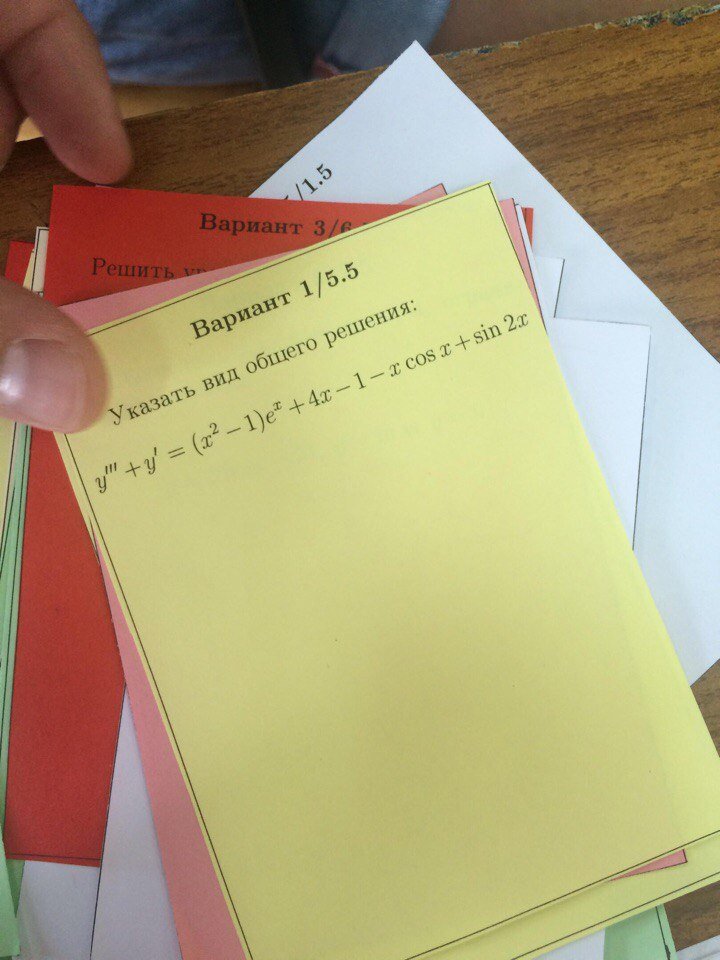 /1.5
Вариант 3/6
Решить
Вариант 1/5.5
Указать вид общего решения:
y''' + y' = (x² − 1)eˣ + 4x − 1 − x cos x + sin 2x